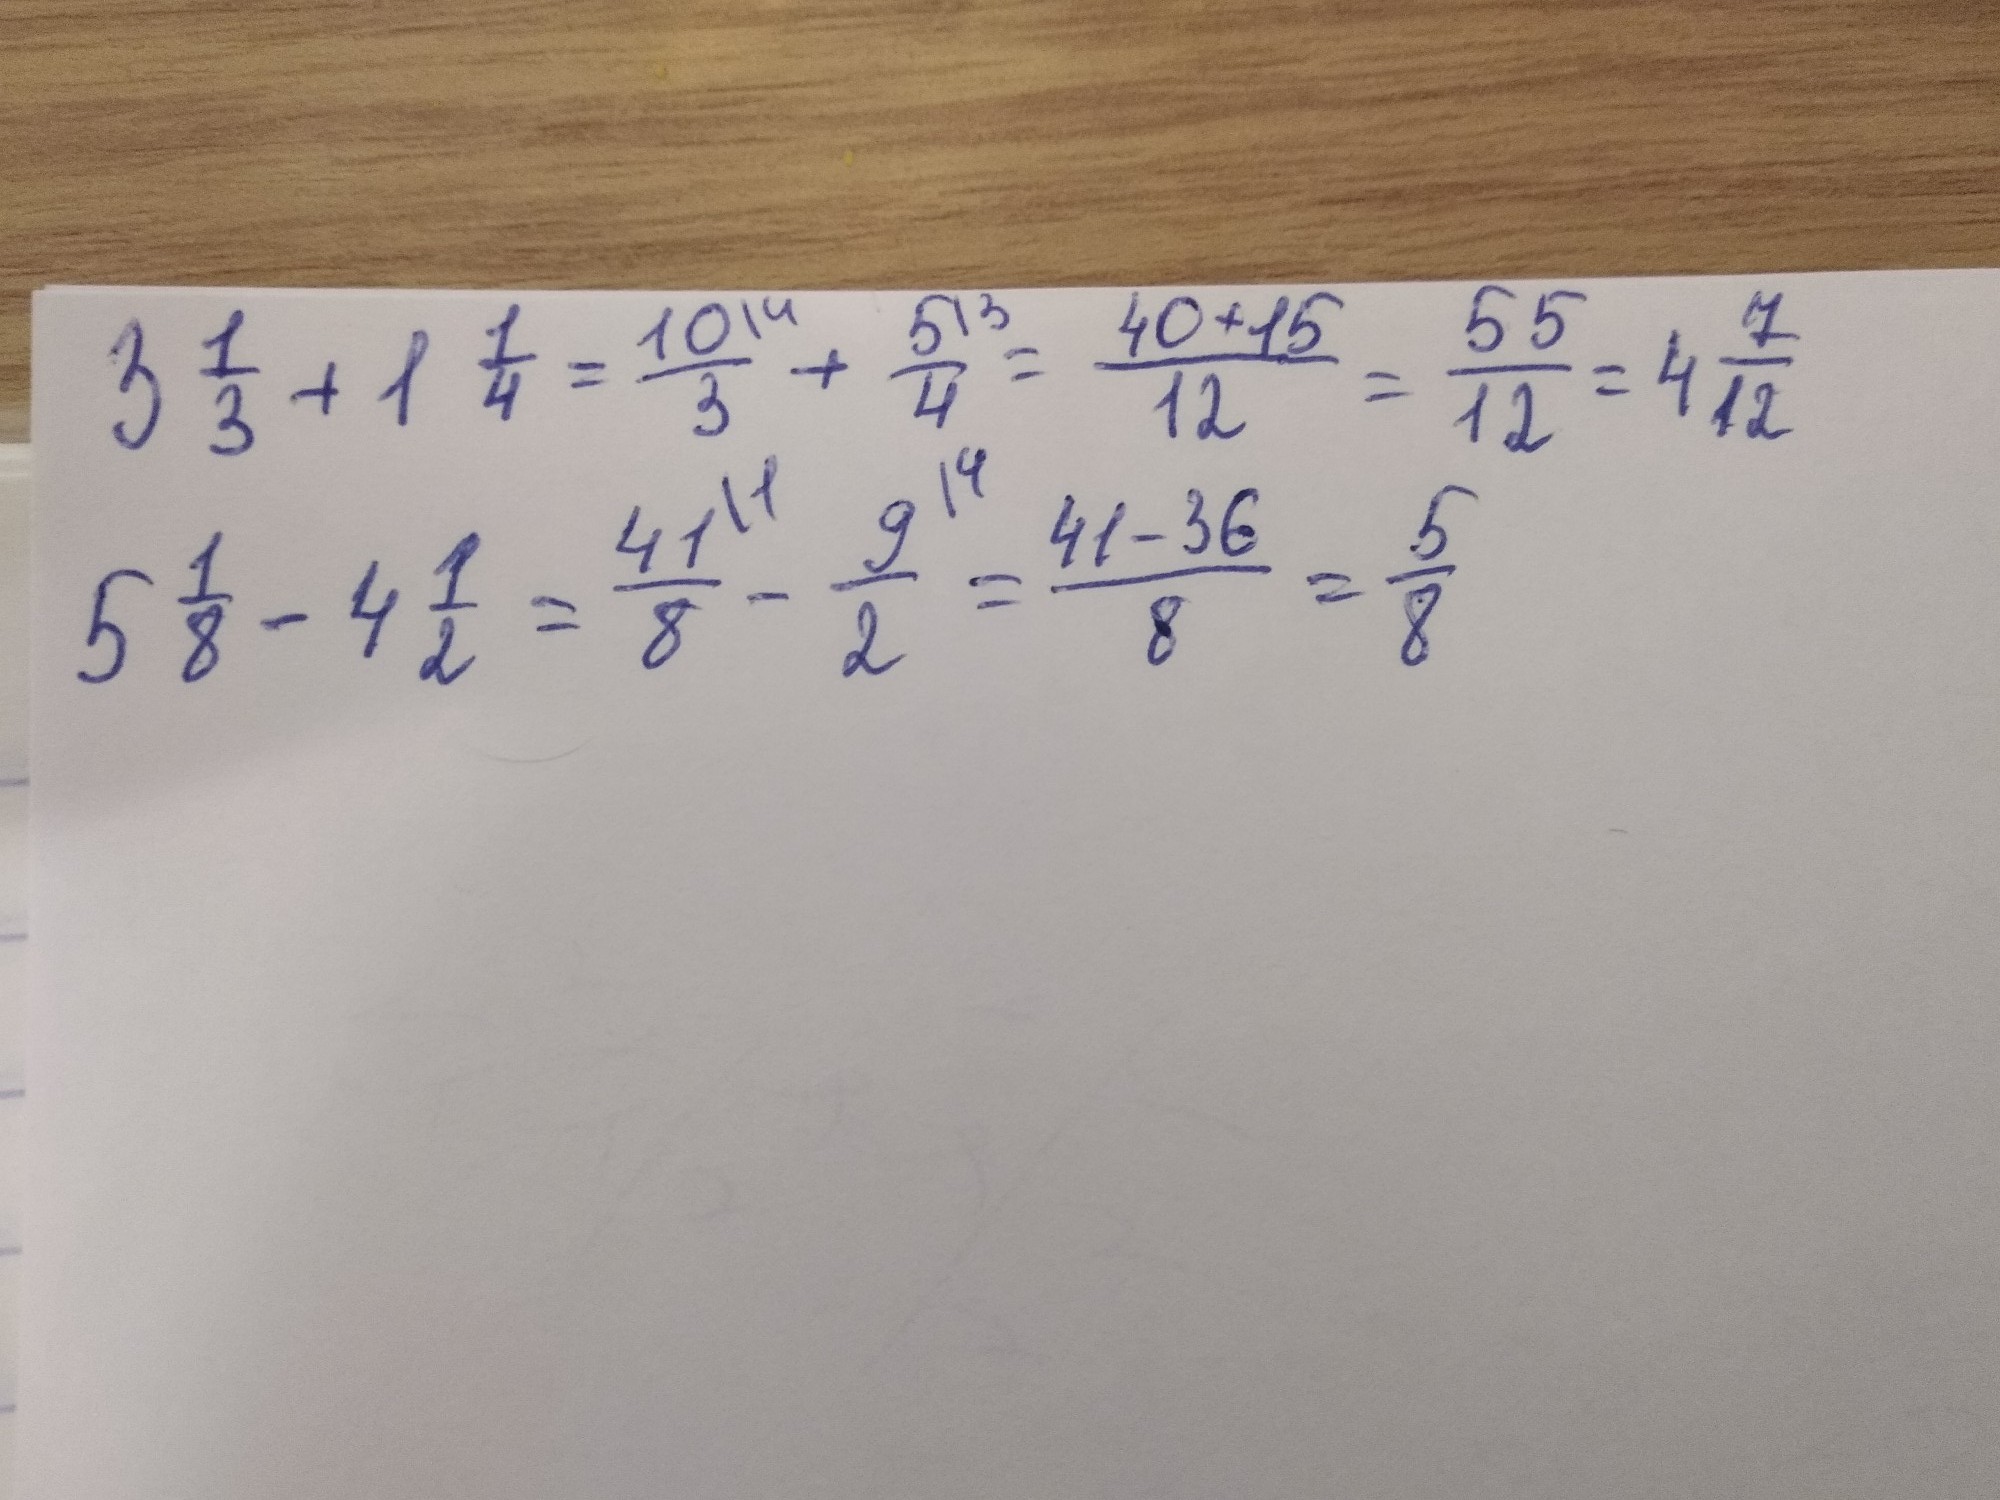 3 1/3 + 1 1/4 = 10\4/3 + 5\3/4 = 40+15/12 = 55/12 = 4 7/12
5 1/8 - 4 1/2 = 41\1/8 - 9\4/2 = 41-36/8 = 5/8